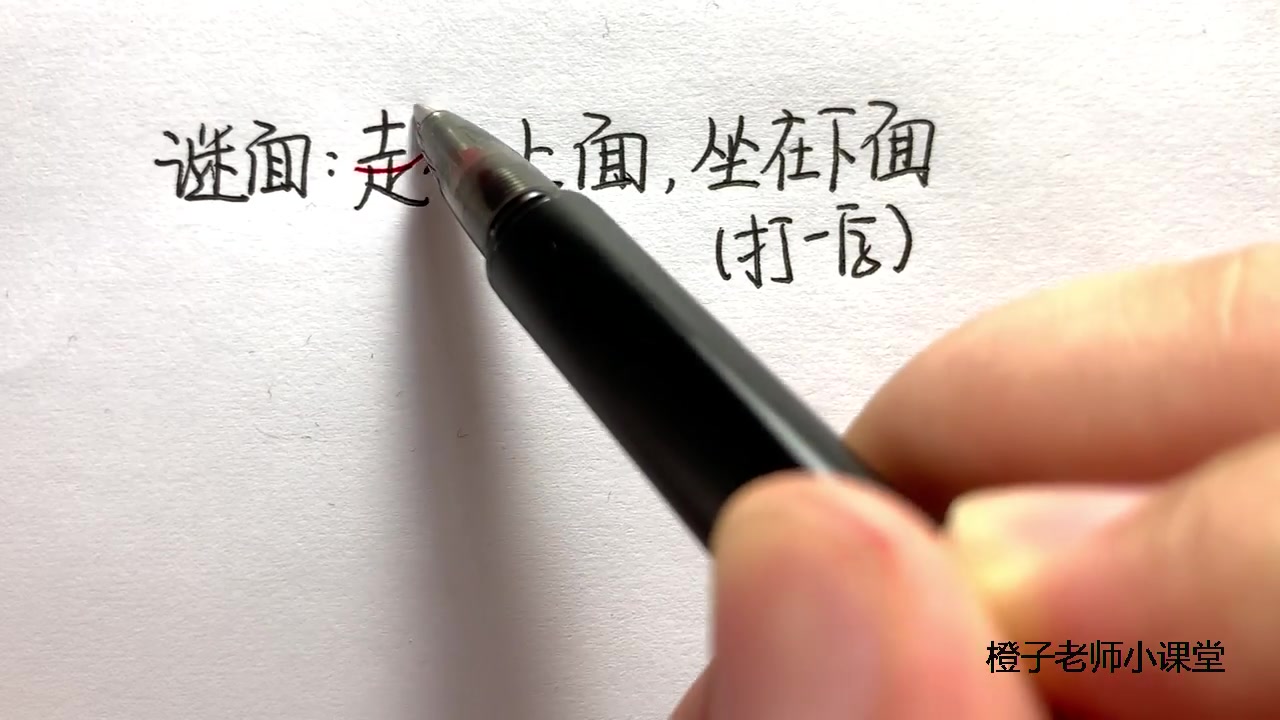 谜面：走 上面，坐在下面
（打一
橙子老师小课堂